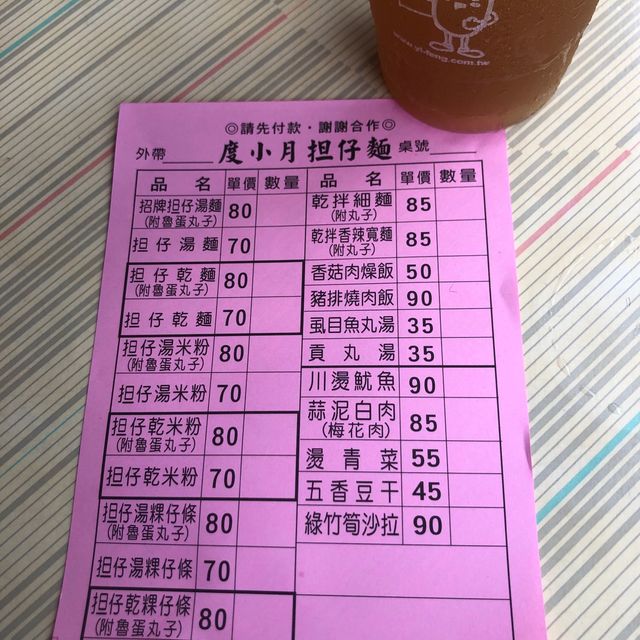 www.yi-feng.com.tw
◎請先付款·謝謝合作◎
外帶 度小月担仔麵 桌號
品名 單價 數量
招牌担仔湯麵 80
(附魯蛋丸子)
担仔湯麵 70
担仔乾麵 80
(附魯蛋丸子)
担仔乾麵 70
担仔湯米粉 80
(附魯蛋丸子)
担仔湯米粉 70
担仔乾米粉 80
(附魯蛋丸子)
担仔乾米粉 70
担仔湯粿仔條 80
(附魯蛋丸子)
担仔湯粿仔條 70
担仔乾粿仔條 80
(附魯蛋丸子)
品名 單價 數量
乾拌細麵 85
(附丸子)
乾拌香辣寬麵 85
(附丸子)
香菇肉燥飯 50
豬排燒肉飯 90
虱目魚丸湯 35
貢丸湯 35
川燙魷魚 90
蒜泥白肉 85
(梅花肉)
燙青菜 55
五香豆干 45
綠竹筍沙拉 90